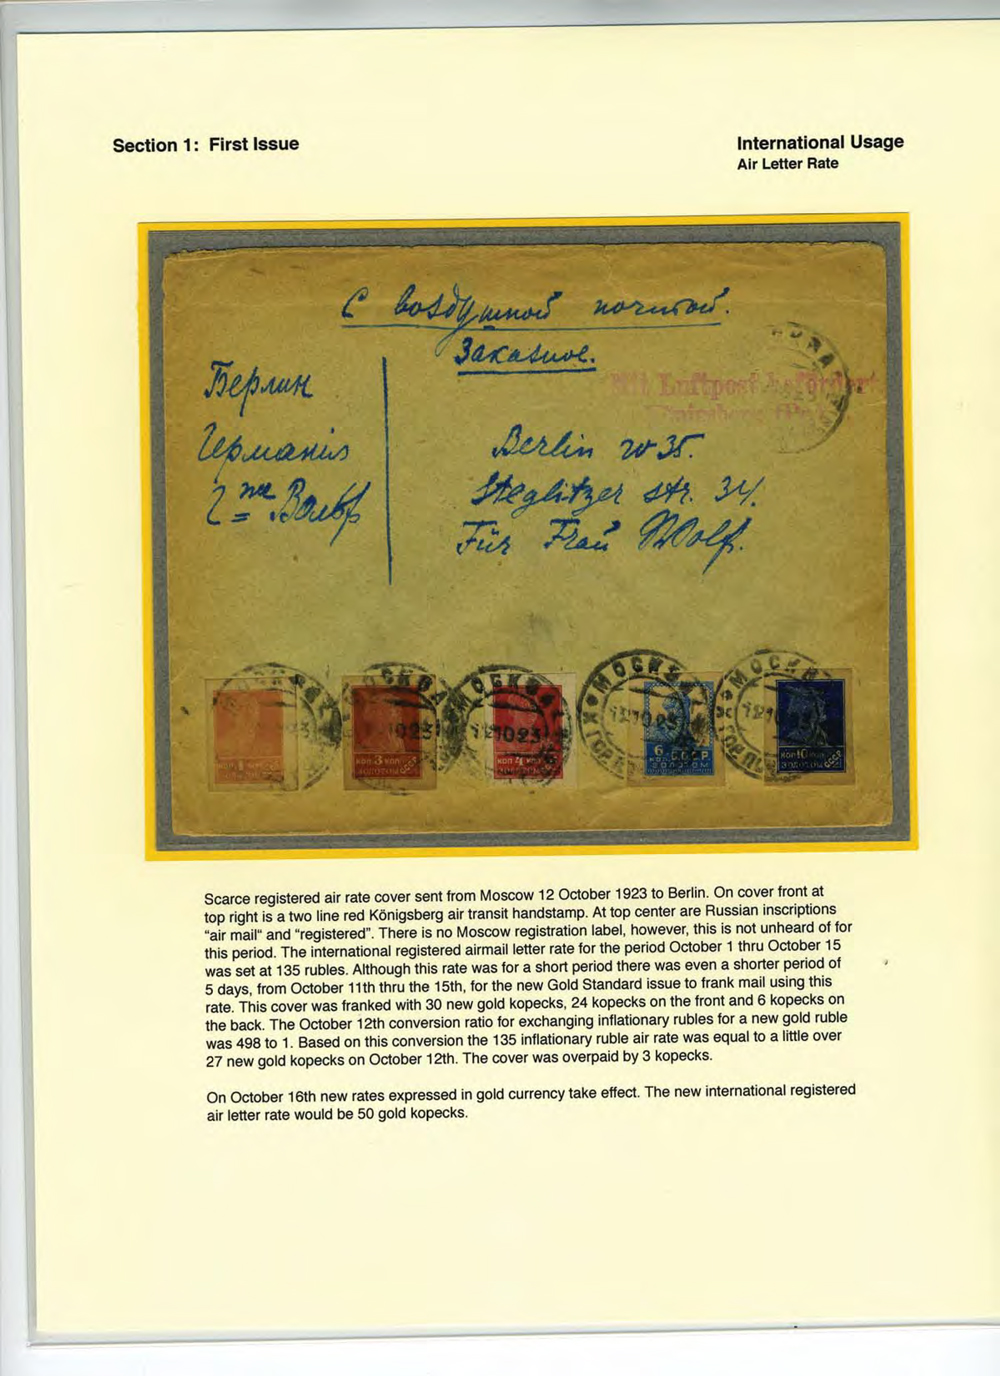 Section 1: First Issue
International Usage
Air Letter Rate
С воздушной почтой.
Заказное.
Берлин
Германия
Г-жа Вольф
Mit Luftpost befördert
Berlin W 35.
Steglitzer str. 34.
Für Frau Wolf.
МОСКВА
МОСКВА
12.10.23
МОСКВА
12.10.23
МОСКВА
12.10.23
МОСКВА
коп 3 коп
ЗОЛОТОМ СССР
коп 4 коп
6 СССР
коп.
ЗОЛОТОМ
коп 10 коп
ЗОЛОТОМ СССР
Scarce registered air rate cover sent from Moscow 12 October 1923 to Berlin. On cover front at
top right is a two line red Königsberg air transit handstamp. At top center are Russian inscriptions
"air mail" and "registered". There is no Moscow registration label, however, this is not unheard of for
this period. The international registered airmail letter rate for the period October 1 thru October 15
was set at 135 rubles. Although this rate was for a short period there was even a shorter period of
5 days, from October 11th thru the 15th, for the new Gold Standard issue to frank mail using this
rate. This cover was franked with 30 new gold kopecks, 24 kopecks on the front and 6 kopecks on
the back. The October 12th conversion ratio for exchanging inflationary rubles for a new gold ruble
was 498 to 1. Based on this conversion the 135 inflationary ruble air rate was equal to a little over
27 new gold kopecks on October 12th. The cover was overpaid by 3 kopecks.
On October 16th new rates expressed in gold currency take effect. The new international registered
air letter rate would be 50 gold kopecks.